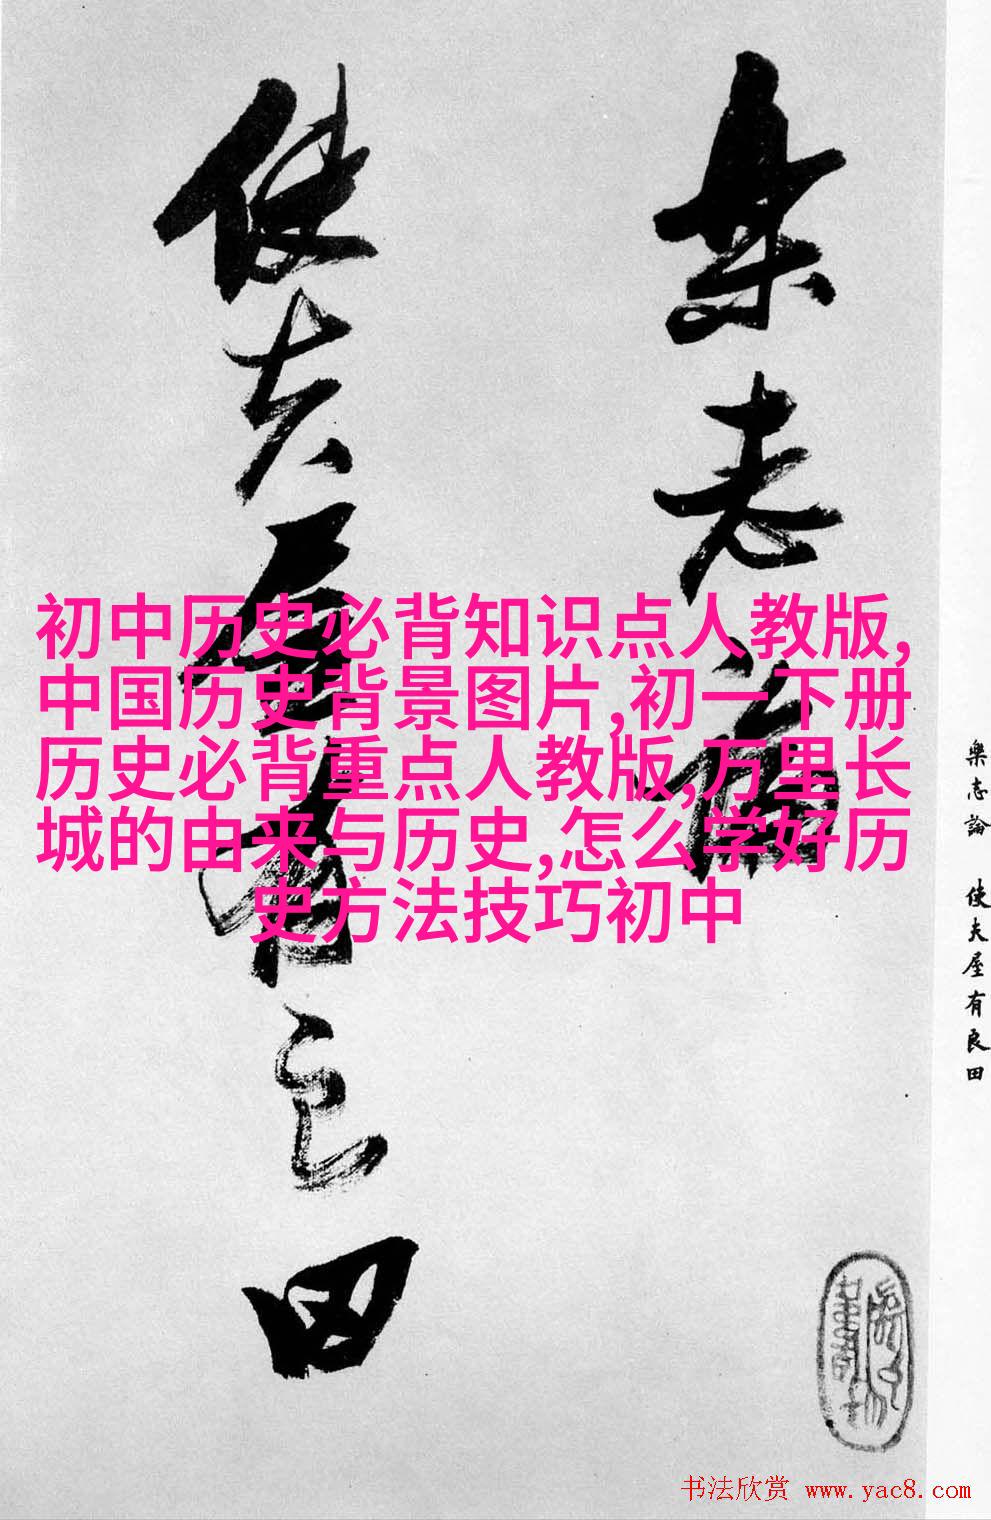 樂志論
使夫屋有良田
初中历史必背知识点人教版,
中国历史背景图片,初一下册
历史必背重点人教版,万里长
城的由来与历史,怎么学好历
史方法技巧初中
樂志論 使夫屋有良田
书法欣赏 www.yac8.com